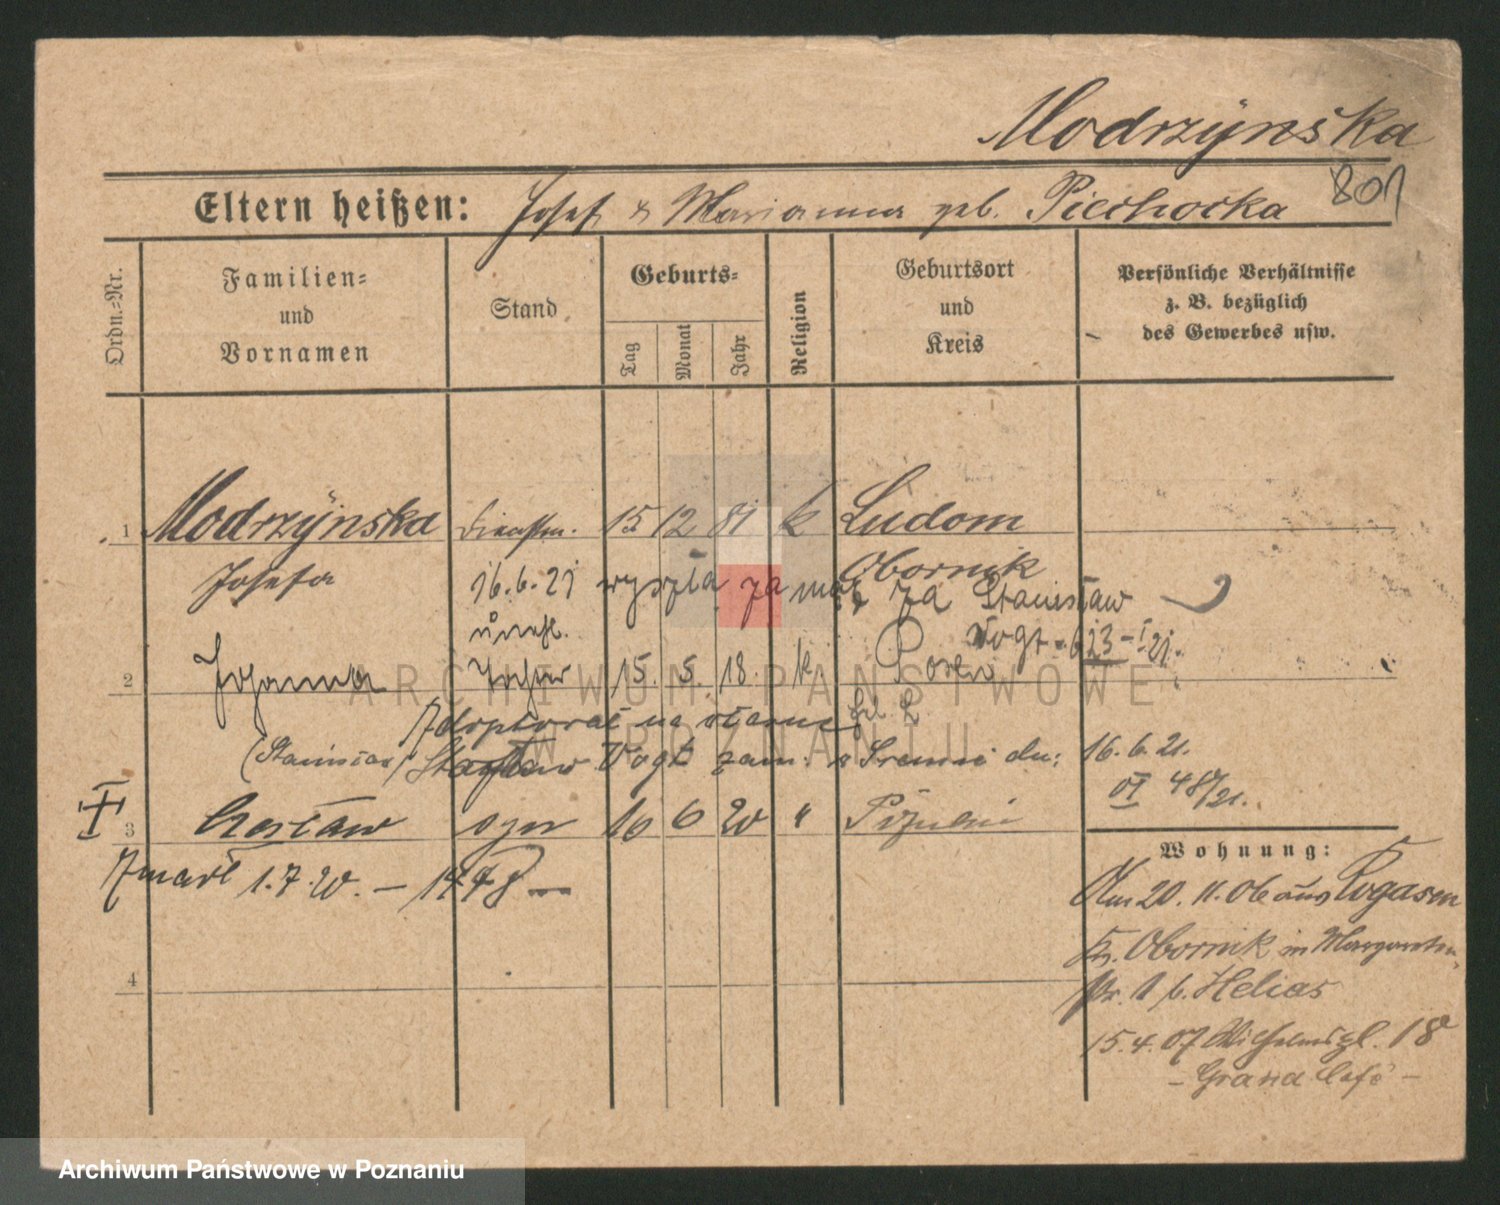 Modrzÿnska
801
Eltern heißen: Josef & Marianna geb. Piechocka
Ordn.=Nr.
Familien=
und
Vornamen
Stand
Geburts=
Tag
Monat
Jahr
Religion
Geburtsort
und
Kreis
Persönliche Verhältnisse
z. B. bezüglich
des Gewerbes usw.
1 Modrzÿnska Dienstm. 15 12 81 k Ludom
Josefa Obornik
16.6.21 wyszła za mąż za Stanisław
Vogt
unehl.
2 Johanna Tochter 15. 5. 18. k. Posen
Adoptował na
(Stanisław) Vogt zam. Śremie dn: 16.6.21.
3 Czesław syn 16 6 20 "
Zmarł 1.7.20. –
4
Wohnung:
Am 20.11.06 aus Rogasen
Kr. Obornik in Margareten
str. 1 b. Helias
15.4.07 Wilhelmspl. 18
– Grand Café –
ARCHIWUM PAŃSTWOWE
W POZNANIU
Archiwum Państwowe w Poznaniu